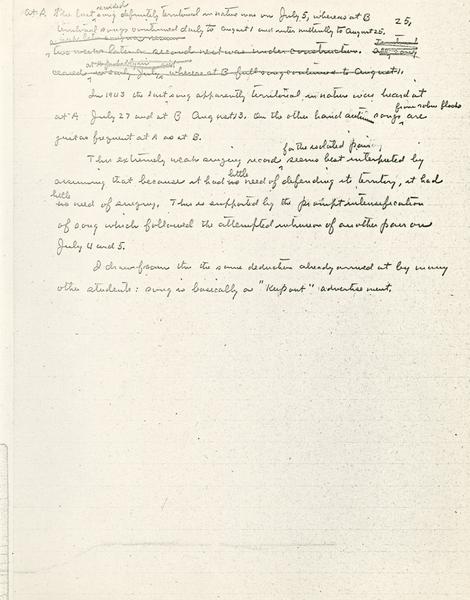 25,
at A the last recorded song definitely territorial in nature was on July 5, whereas at B
territorial songs continued daily to August 1 and intermittently to August 25.
two weeks later a second nest was under construction.
ceased early July whereas at B full song continued to August 1.
In 1943 the last song apparently territorial in nature was heard at
at A July 27 and at B August 13. On the other hand autumn songs from robin flocks are
just as frequent at A as at B.
This extremely weak singing record for the isolated pair, seems best interpreted by
assuming that because it had little no need of defending its territory, it had
little no need of singing. This is supported by the prompt intensification
of song which followed the attempted intrusion of another pair on
July 4 and 5.
I draw from this the same deduction already arrived at by many
other students: song is basically a "Keep out" advertisement.